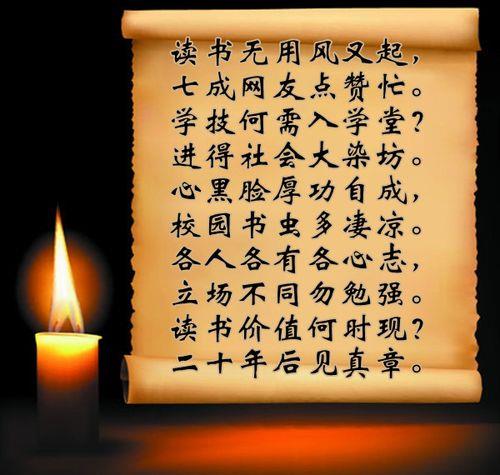 读书无用风又起，
七成网友点赞忙。
学技何需入学堂？
进得社会大染坊。
心黑脸厚功自成，
校园书虫多凄凉。
各人各有各心志，
立场不同勿勉强。
读书价值何时现？
二十年后见真章。